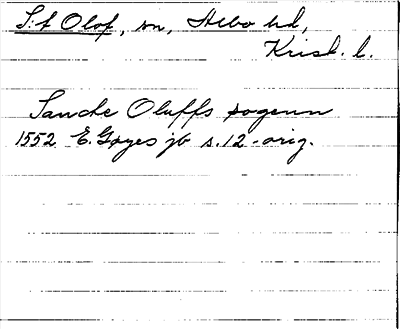 S:t Olof, sn, Albo hd,
Krist. l.
Sancte Oluffs sogenn
1552 E. Gøyes jb s. 12 - orig.